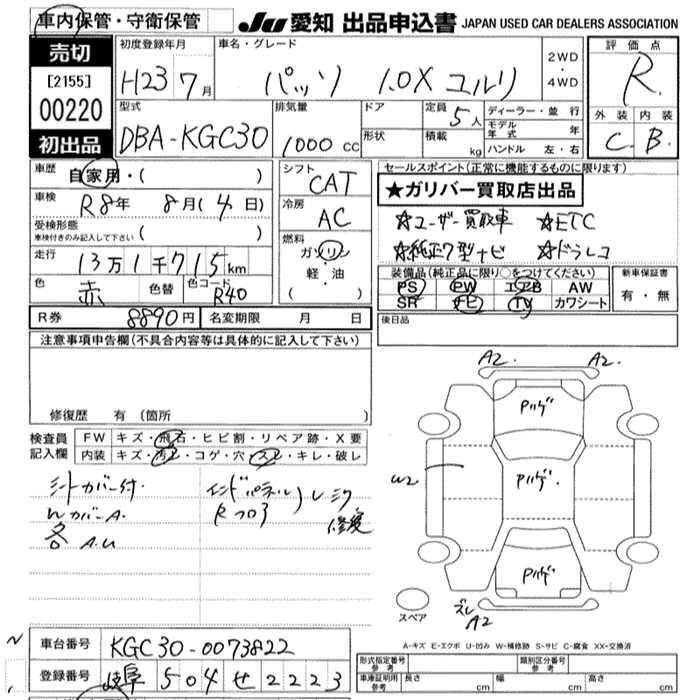 車内保管・守衛保管
JU 愛知 出品申込書 JAPAN USED CAR DEALERS ASSOCIATION
売切
[2155]
00220
初出品
初度登録年月 車名・グレード 2WD・4WD 評価点
H23 7月 パッソ 1.0X ユルリ R
型式 排気量 ドア 定員 ディーラー・並行 外装 内装
DBA-KGC30 1000 CC 形状 5人 積載 kg モデル年式 年 ハンドル 左・右 C B
車歴 自家用・( )
車検 R8年 8月(4日)
受検形態
車検付きのみ記入して下さい ( )
走行 13万1千715km
色 赤 色替 色コード R40
シフト CAT
冷房 AC
燃料 ガソリン
軽・油
( )
セールスポイント(正常に機能するものに限ります)
★ガリバー買取店出品
☆ユーザー買取車 ☆ETC
☆純正7型ナビ ☆ドラレコ
装備品(純正品に限り○をつけてください) 新車保証書
PS PW エアB AW 有・無
SR ナビ TV カワシート
R券 8890円 名変期限 月 日
後日品
注意事項申告欄(不具合内容等は具体的に記入して下さい)
修復歴 有 (箇所
検査員記入欄 FW キズ・飛石・ヒビ割・リペア跡・X要
内装 キズ・汚レ・コゲ・穴・スレ・キレ・破レ
シートカバー付
Wカバー A.
各 A.U
インドパネル
R.
A2. A2.
Pハゲ
W2 Pハゲ.
Pハゲ
スペア ズレ A2
A-キズ E-エクボ U-凹み W-補修跡 S-サビ C-腐食 XX-交換済
車台番号 KGC30-0073822
登録番号 岐阜 504 せ 2223
形式指定番号 参考 類別区分番号 参考
車庫証明用 参考 長さ cm 幅 cm 高さ cm